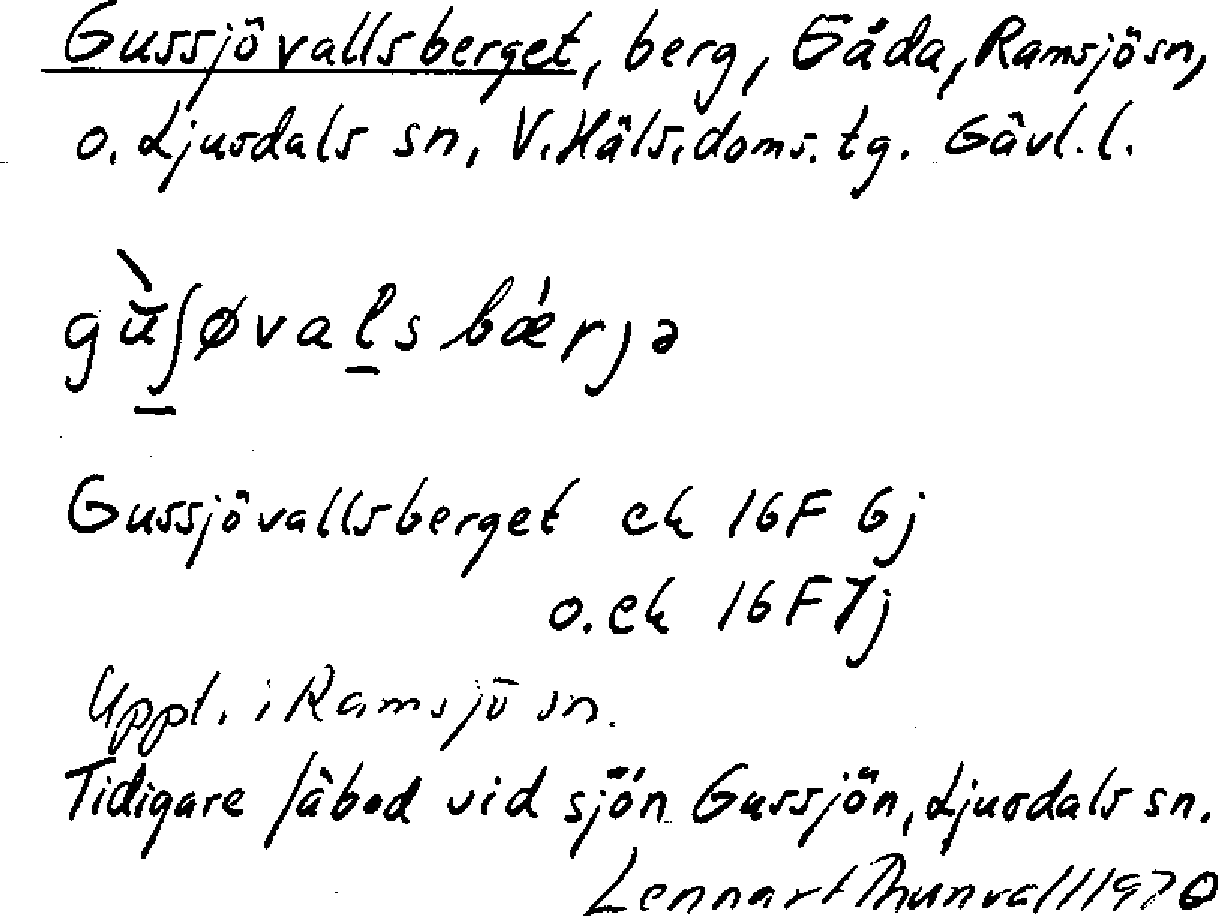 Gussjövallsberget, berg, Gåda, Ramsjö sn,
o. Ljusdals sn, V. Häls. doms. tg. Gävl. l.
gùʃøvalsbǽrjə
Gussjövallsberget ek 16F 6j
o. ek 16F 7j
Uppt. i Ramsjö sn.
Tidigare fäbod vid sjön Gussjön, Ljusdals sn.
Lennart Thunvall 1970